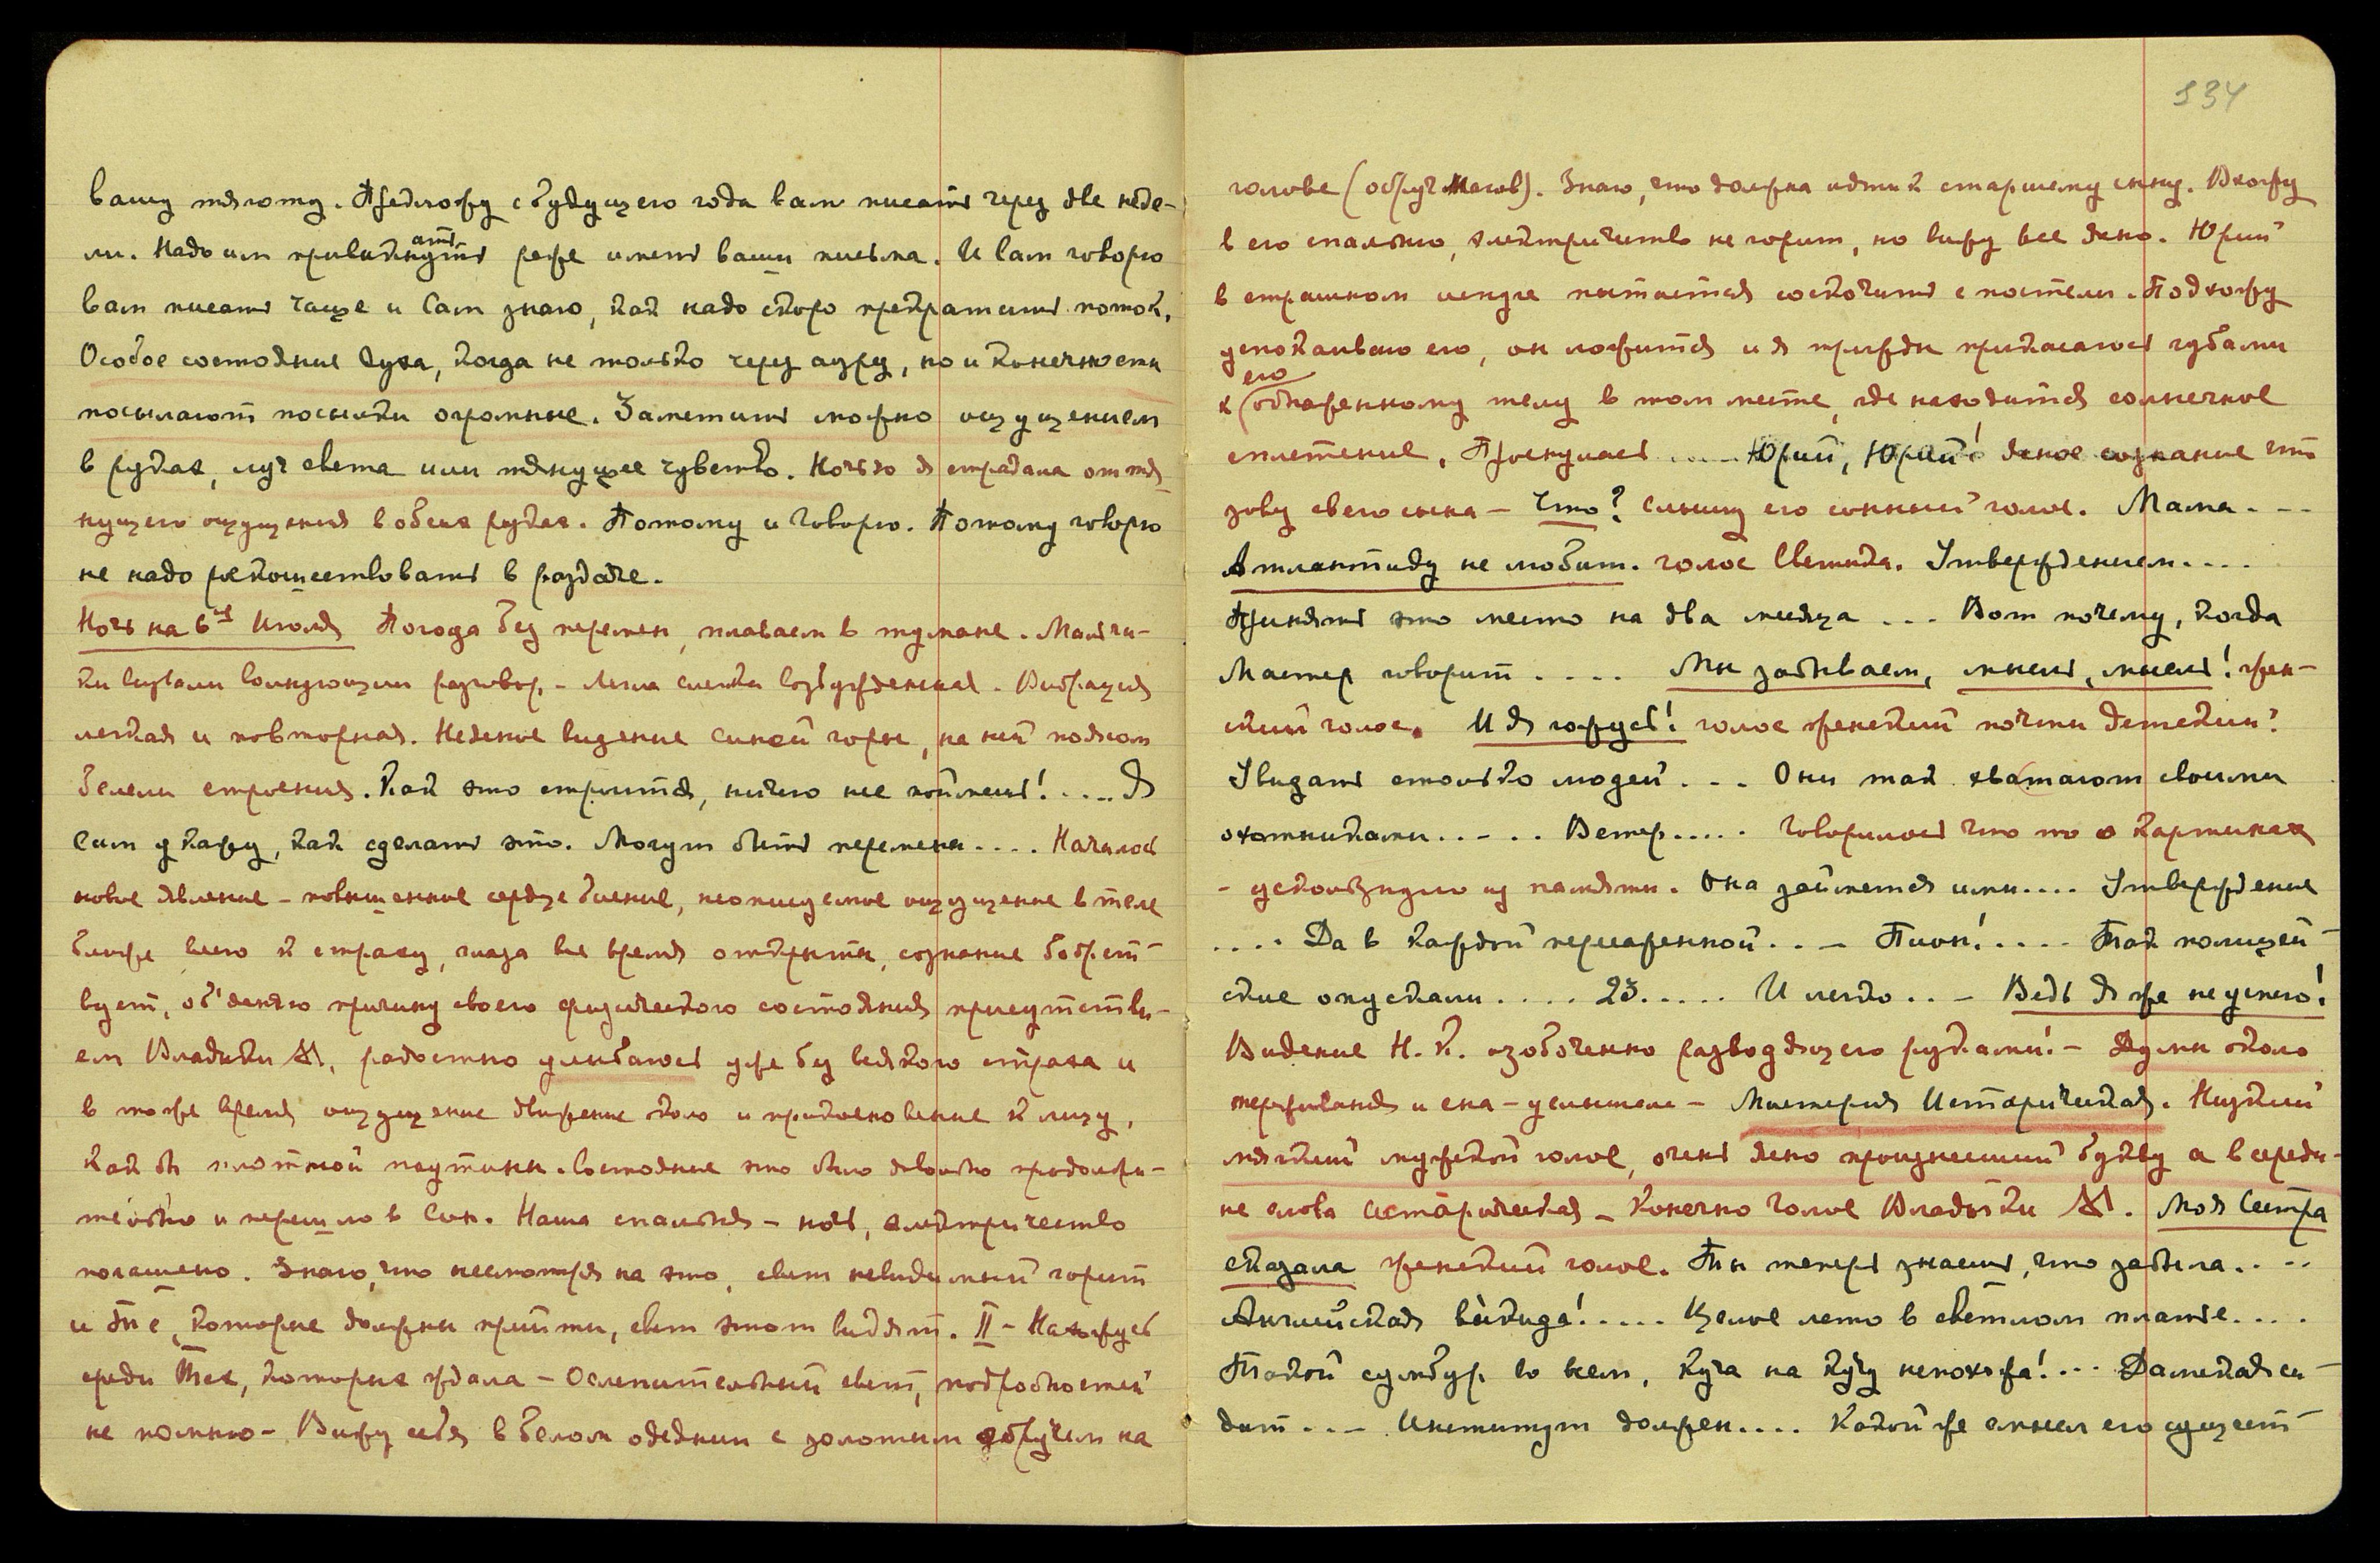 вашу тягому. Предложу с будущего года вам писать через две неде-
ли. Надо им привыкать реже иметь ваши письма. И Сам говорю
вам писать чаще и Сам знаю, как надо скоро прекратить поток.
Особое состояние Духа, когда не только через ауру, но и конечности
посылают посылки огромные. Заметить можно ощущением
в руках, луч света или тянущее чувство. Ночью я страдала от тя-
нущего ощущения в обеих руках. Потому и говорю. Потому говорю
не надо роскошествовать в раздаче.
Ночь на 6ое Июля Погода без перемен, плаваем в тумане. Мальчи-
ки вызвали волнующий разговор. – Легла слегка возбужденная. Вибрация
легкая и повторная. Неясное видение синей горы, на ней поясом
белели строения. Как это строится, ничего не поймешь! .... Я
Сам укажу, как сделать это. Могут быть перемены .... Началось
новое явление – повышенное сердцебиение, неописуемое ощущение в теле
ближе всего к страху, глаза все время открыты, сознание бодрст-
вует, об'ясняю причину своего физического состояния присутстви-
ем Владыки М., радостно улыбаюсь уже без всякого страха и
в то же время ощущение движение около и прикосновение к лицу,
как бы плотной паутины. Состояние это было довольно продолжи-
тельно и перешло в сон. Наша спальня – ночь, электричество
погашено. Знаю, что несмотря на это, свет невидимый горит
и Те, которые должны прийти, свет этот видят. II – Нахожусь
среди Тех, которых ждала – Ослепительный свет, подробностей
не помню – Вижу себя в белом одеянии с золотым обручем на
334
голове (обруч Магов). Знаю, что должна идти к старшему сыну. Вхожу
в его спальню, электричество не горит, но вижу все ясно. Юрий
в страшном испуге пытается соскочить с постели. Подхожу
успокаиваю его, он ложится и я трижды прикасаюсь губами
к его обнаженному телу в том месте, где находится солнечное
сплетение. Проснулась .... Юрий, Юрий! ясное сознание что
зову своего сына – Что? слышу его сонный голос. Мама ...
Атлантиду не любит. голос Светика. Утверждением ....
Принять это место на два месяца ... Вот почему, когда
Мастер говорит .... Мы забываем, мысль, мысль! жен-
ский голос. И я горжусь! голос женский почти детский?
Увидать столько людей ... Они так хватают своими
охотниками ..... Ветер ..... Говорилось что-то о картинах
– ускользнуло из памяти. Она займется ими .... Утверждение
.... Да в каждой пережаренной ... Пион! .... Так полицей-
ские опускали .... 23 ..... И легко ... Ведь я же не успею!
Видение Н. К. озабоченно разводящего руками! – Думы около
терзания и сна – услышала – Мистерия Историческая. Низкий
мягкий мужской голос, очень ясно произнесший букву а в середи-
не слова историческая – Конечно голос Владыки М. Моя Сестра
сказала женский голос. Ты теперь знаешь, что забыла ....
Английская ..... Целое лето в светлом платье ....
Такой сумбур во всем, куча на кучу непохожа! ... Дамская си-
дит ... Институт должен .... Какой же смысл его сущест-